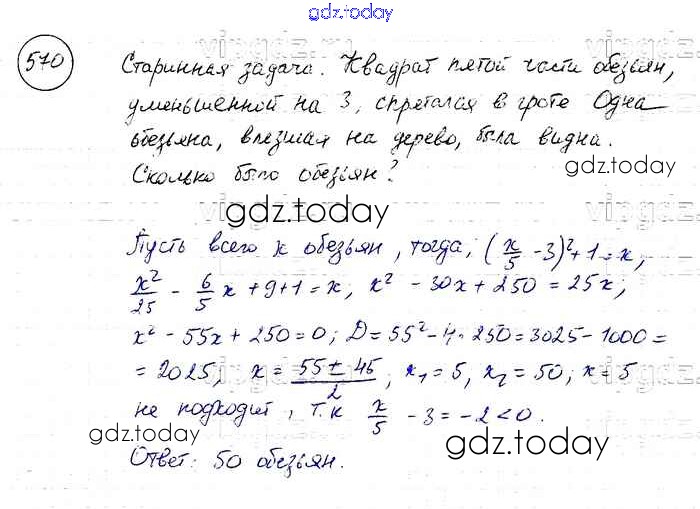 gdz.today
570 Старинная задача. Квадрат пятой части обезьян,
уменьшенной на 3, спрятался в гроте Одна
обезьяна, влезшая на дерево, была видна.
gdz.today
Сколько было обезьян?
gdz.today
Пусть всего x обезьян, тогда, (x/5 - 3)² + 1 = x,
x²/25 - 6/5 x + 9 + 1 = x; x² - 30x + 250 = 25x;
x² - 55x + 250 = 0; D = 55² - 4 · 250 = 3025 - 1000 =
= 2025, x = (55 ± 45)/2; x₁ = 5, x₂ = 50; x = 5
не подходит, т.к x/5 - 3 = -2 < 0.
gdz.today
gdz.today
Ответ: 50 обезьян.